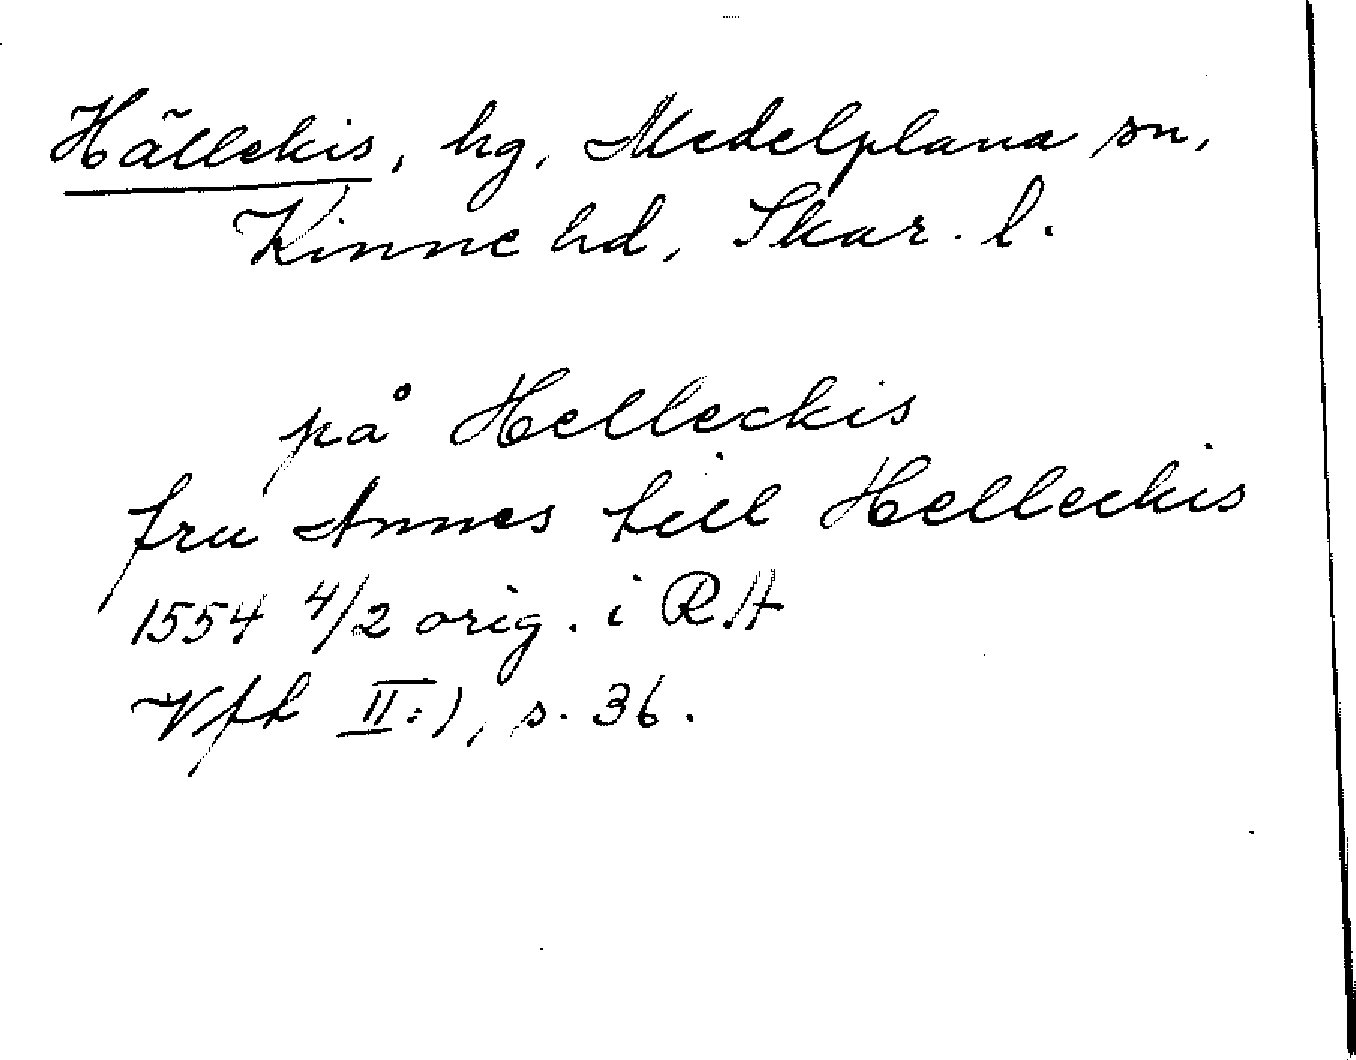 Hällekis, hg, Medelplana sn,
Kinne hd, Skar. l.
på Helleckis
fru Annes till Helleckis
1554 4/2 orig. i RA
Vfh II:1, s. 36.